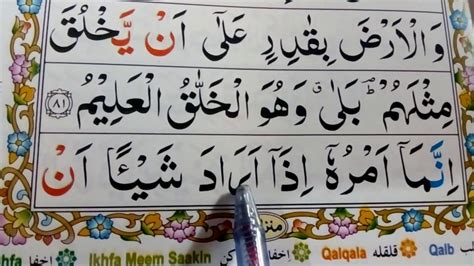 وَالْاَرْضَ بِقٰدِرٍ عَلٰۤى اَنْ يَّخْلُقَ
مِثْلَهُمْ ؕ بَلٰى ۗ وَهُوَ الْخَلّٰقُ الْعَلِيْمُ ۝٨١
اِنَّمَاۤ اَمْرُهٗۤ اِذَاۤ اَرَادَ شَيْـًٔا اَنْ
Ikhfa Meem Saakin اخفا
قلقله Qalqala
قلب Qalb